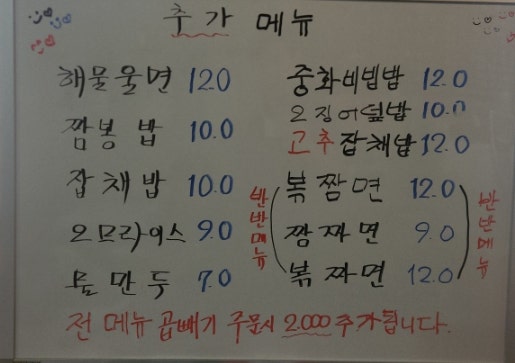 추가 메뉴
해물울면 12.0
짬뽕밥 10.0
잡채밥 10.0
오므라이스 9.0
물만두 7.0
중화비빔밥 12.0
오징어덮밥 10.0
고추잡채밥 12.0
반반메뉴
볶짬면 12.0
짬짜면 9.0
볶짜면 12.0
반반메뉴
전 메뉴 곱빼기 주문시 2.000 추가됩니다.